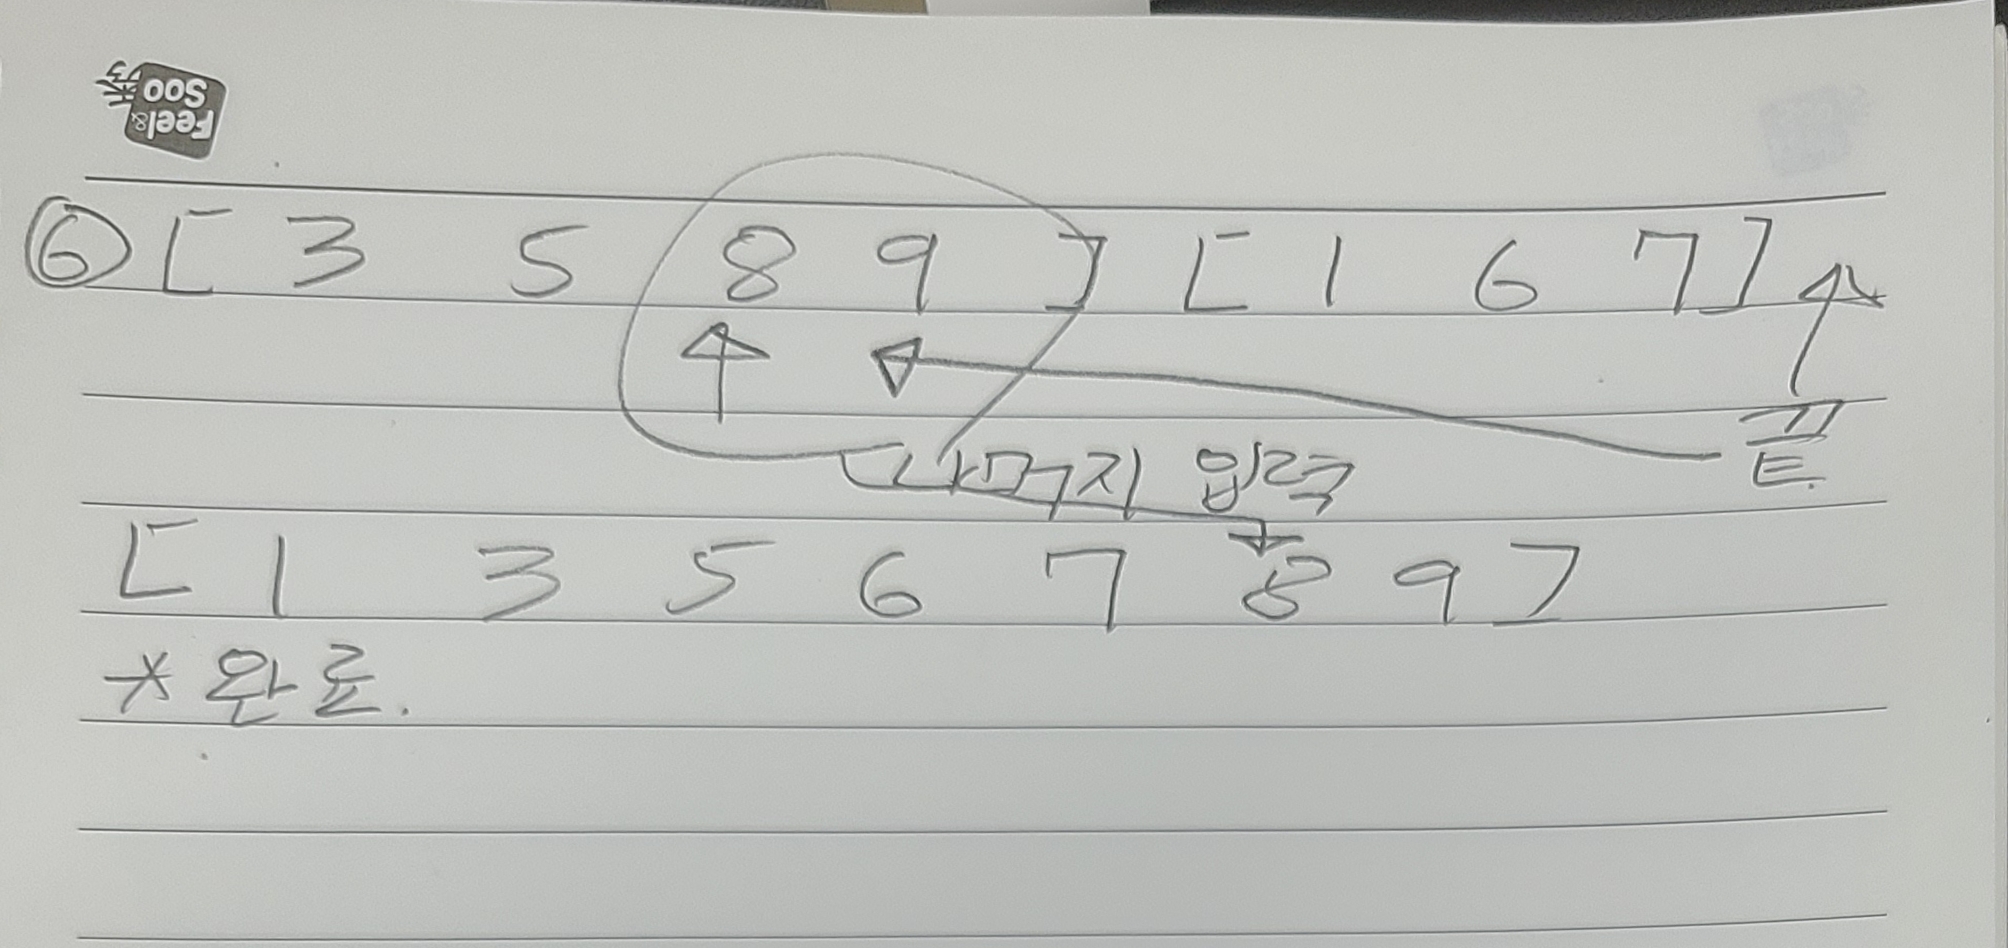 Feel&
Soo
⑥ [ 3 5 8 9 ] [ 1 6 7 ]
끝
나머지 입력
[ 1 3 5 6 7 8 9 ]
* 완료.